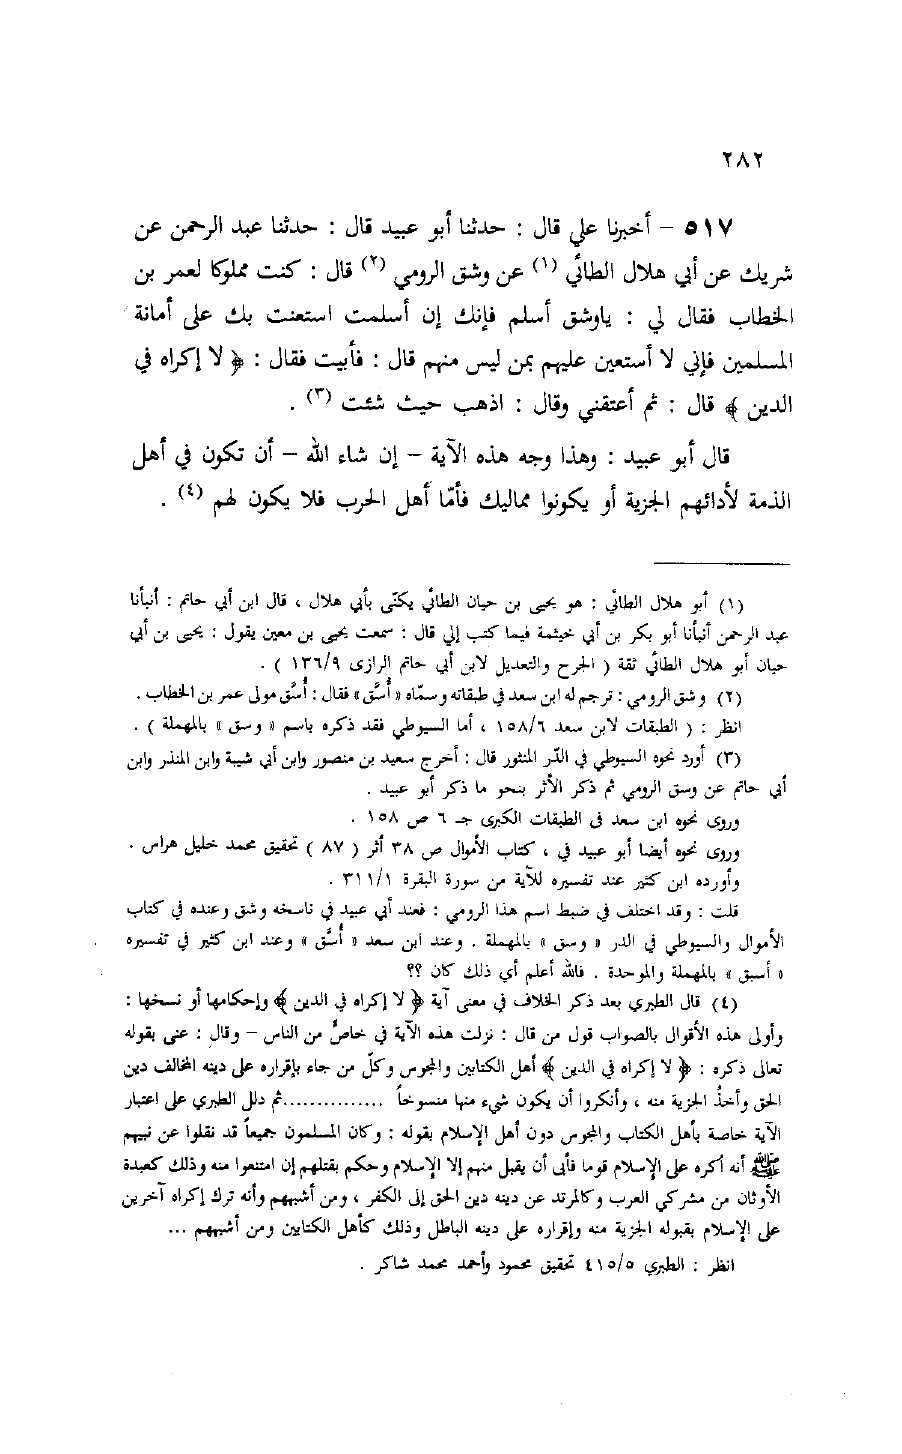 ٢٨٢
٥١٧ - أخبرنا علي قال : حدثنا أبو عبيد قال : حدثنا عبد الرحمن عن
شريك عن أبي هلال الطائي (١) عن وشق الرومي (٢) قال : كنت مملوكا لعمر بن
الخطاب فقال لي : ياوشق أسلم فإنك إن أسلمت استعنت بك على أمانة
المسلمين فإني لا أستعين عليهم بمن ليس منهم قال : فأبيت فقال : ﴿ لا إكراه في
الدين ﴾ قال : ثم أعتقني وقال : اذهب حيث شئت (٣) .
قال أبو عبيد : وهذا وجه هذه الآية - إن شاء الله - أن تكون في أهل
الذمة لأدائهم الجزية أو يكونوا مماليك فأمّا أهل الحرب فلا يكون لهم (٤) .
(١) أبو هلال الطائي : هو يحيى بن حيان الطائي يكنّى بأبي هلال ، قال ابن أبي حاتم : أنبأنا
عبد الرحمن أنبأنا أبو بكر بن أبي خيثمة فيما كتب إلي قال : سمعت يحيى بن معين يقول : يحيى بن أبي
حيان أبو هلال الطائي ثقة ( الجرح والتعديل لابن أبي حاتم الرازى ١٣٦/٩ ) .
(٢) وشق الرومي : ترجم له ابن سعد في طبقاته وسمّاه « أُسَّق » فقال : أُسَّق مولى عمر بن الخطاب .
انظر : ( الطبقات لابن سعد ١٥٨/٦ ، أما السيوطي فقد ذكره باسم « وسق » بالمهملة ) .
(٣) أورد نحوه السيوطي في الدّر المنثور قال : أخرج سعيد بن منصور وابن أبي شيبة وابن المنذر وابن
أبي حاتم عن وسق الرومي ثم ذكر الأثر بنحو ما ذكر أبو عبيد .
وروى نحوه ابن سعد فى الطبقات الكبرى جـ ٦ ص ١٥٨ .
وروى نحوه أيضا أبو عبيد في ، كتاب الأموال ص ٣٨ أثر ( ٨٧ ) تحقيق محمد خليل هراس .
وأورده ابن كثير عند تفسيره للآية من سورة البقرة ٣١١/١ .
قلت : وقد اختلف في ضبط اسم هذا الرومي : فعند أبي عبيد في ناسخه وشق وعنده في كتاب
الأموال والسيوطي في الدر « وسق » بالمهملة . وعند ابن سعد « أُسَّق » وعند ابن كثير في تفسيره
« أسبق » بالمهملة والموحدة . فالله أعلم أي ذلك كان ؟؟
(٤) قال الطبري بعد ذكر الخلاف في معنى آية ﴿ لا إكراه في الدين ﴾ وإحكامها أو نسخها :
وأولى هذه الأقوال بالصواب قول من قال : نزلت هذه الآية في خاصٍّ من الناس - وقال : عنى بقوله
تعالى ذكره : ﴿ لا إكراه في الدين ﴾ أهل الكتابين والمجوس وكلّ من جاء بإقراره على دينه المخالف دين
الحق وأخذُ الجزية منه ، وأنكروا أن يكون شيء منها منسوخاً ................ثم دلل الطبري على اعتبار
الآية خاصة بأهل الكتاب والمجوس دون أهل الإسلام بقوله : وكان المسلمون جميعاً قد نقلوا عن نبيهم
ﷺ أنه أكره على الإسلام قوما فأبى أن يقبل منهم إلا الإسلام وحكم بقتلهم إن امتنعوا منه وذلك كعبدة
الأوثان من مشركي العرب وكالمرتد عن دينه دين الحق إلى الكفر ، ومن أشبههم وأنه ترك إكراه آخرين
على الإسلام بقبوله الجزية منه وإقراره على دينه الباطل وذلك كأهل الكتابين ومن أشبههم ...
انظر : الطبري ٤١٥/٥ تحقيق محمود وأحمد محمد شاكر .